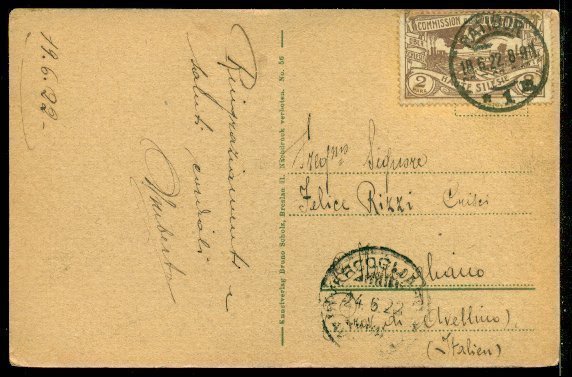 19.6.22-
Ringraziamenti e
saluti cordiali
Umberto
Kunstverlag Bruno Scholz, Breslau II. Nachdruck verboten. No. 56
COMMISSION
2
MARK
HAUTE SILÉSIE
RATIBOR
19.6.22.8-9V
* 1 *
Signore
Felice Rizzi
24.6.22
di Avellino)
(Italien)